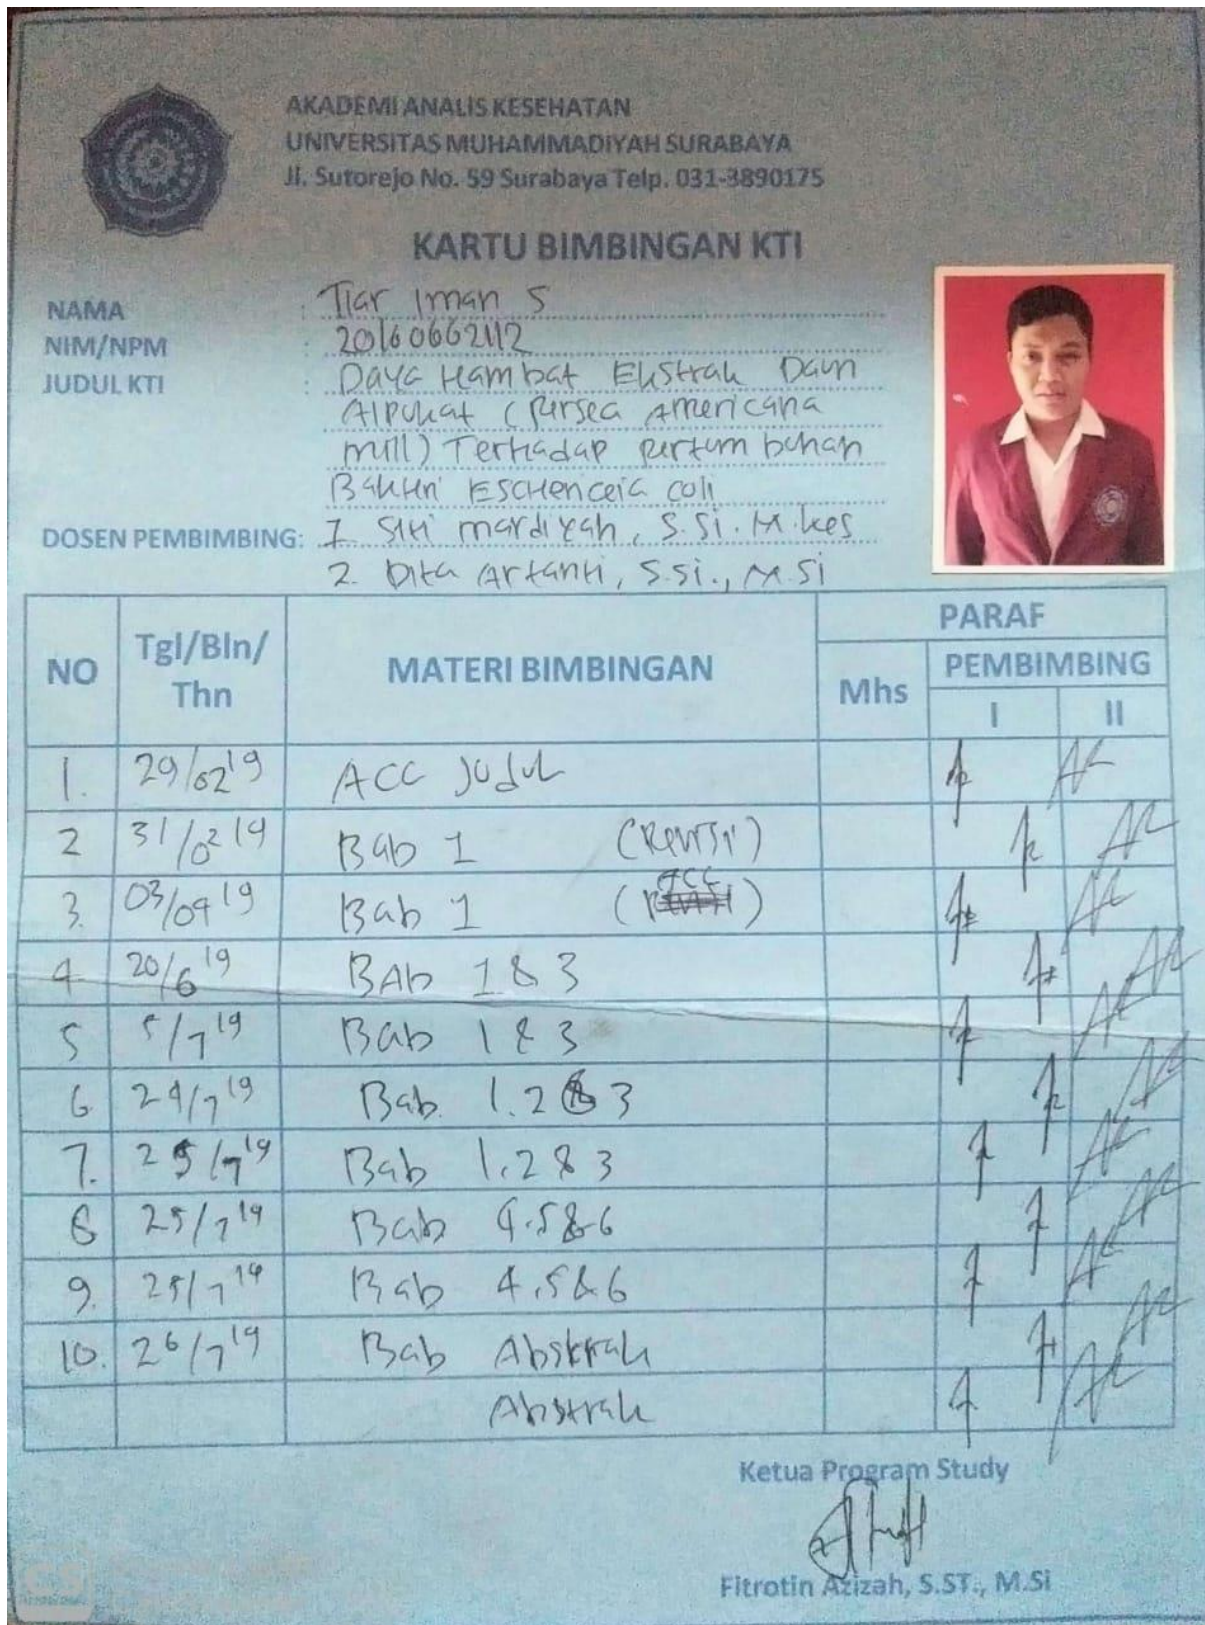 AKADEMI ANALIS KESEHATAN
UNIVERSITAS MUHAMMADIYAH SURABAYA
Jl. Sutorejo No. 59 Surabaya Telp. 031-3890175
KARTU BIMBINGAN KTI
NAMA : Tiar Iman S
NIM/NPM : 20160662112
JUDUL KTI : Daya Hambat Ekstrak Daun
Alpukat (Persea Americana
mill) Terhadap pertumbuhan
Bakteri Escherceia coli
DOSEN PEMBIMBING: 1. Siti mardiyah, S.Si. M.kes
2. Dita Artanti, S.Si., M.Si
NO Tgl/Bln/Thn MATERI BIMBINGAN PARAF
Mhs PEMBIMBING
I II
1. 29/02 19 ACC Judul
2 31/02 19 Bab 1 (Revisi)
3. 03/04 19 Bab 1 (ACC)
4 20/6 19 BAb 1 & 3
5 5/7 19 Bab 1 & 3
6 24/7 19 Bab. 1.2 & 3
7. 25/7 19 Bab 1,2 & 3
8 25/7 19 Bab 4.5 & 6
9. 25/7 19 Bab 4,5 & 6
10. 26/7 19 Bab Abstrak
Abstrak
Ketua Program Study
Fitrotin Azizah, S.ST., M.Si
CS